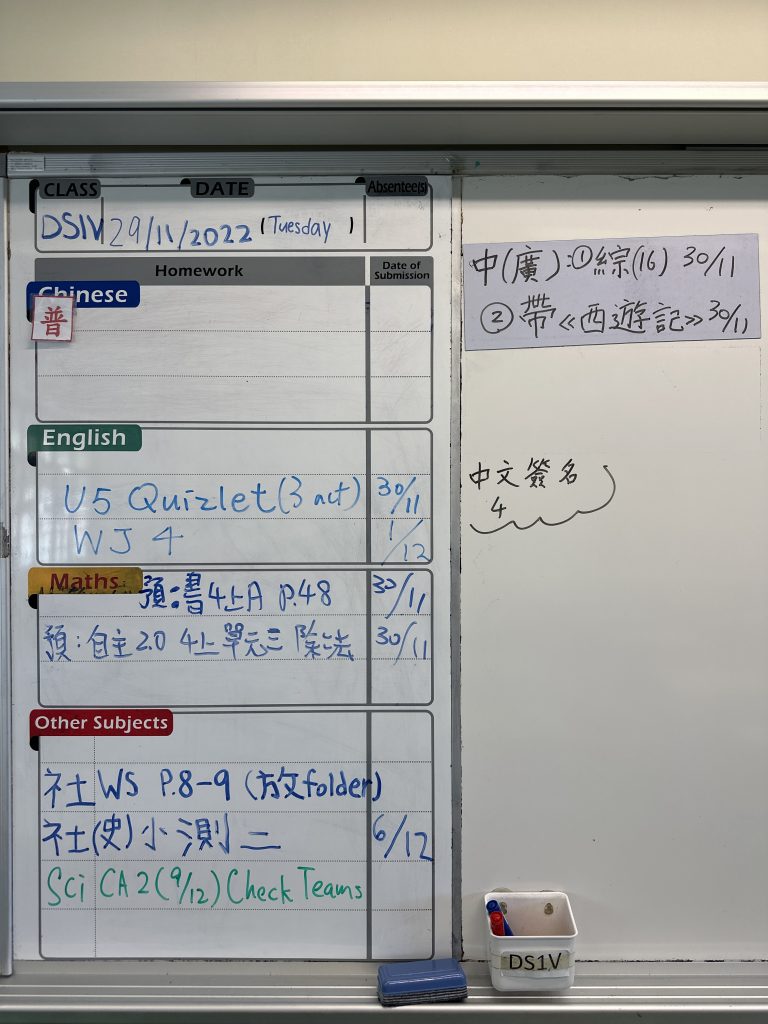 CLASS DATE Absentee(s)
DS1V 29/11/2022 (Tuesday )
Homework Date of Submission
Chinese
普
English
U5 Quizlet (3 act) 30/11
WJ 4 1/12
Maths
預:書4上A P.48 30/11
預:自主2.0 4上單元三 除法 30/11
Other Subjects
社 WS P.8-9 (放folder)
社(史)小測二 6/12
Sci CA 2 (9/12) Check Teams
中(廣):①綜(16) 30/11
②帶《西遊記》30/11
中文簽名
4
DS1V